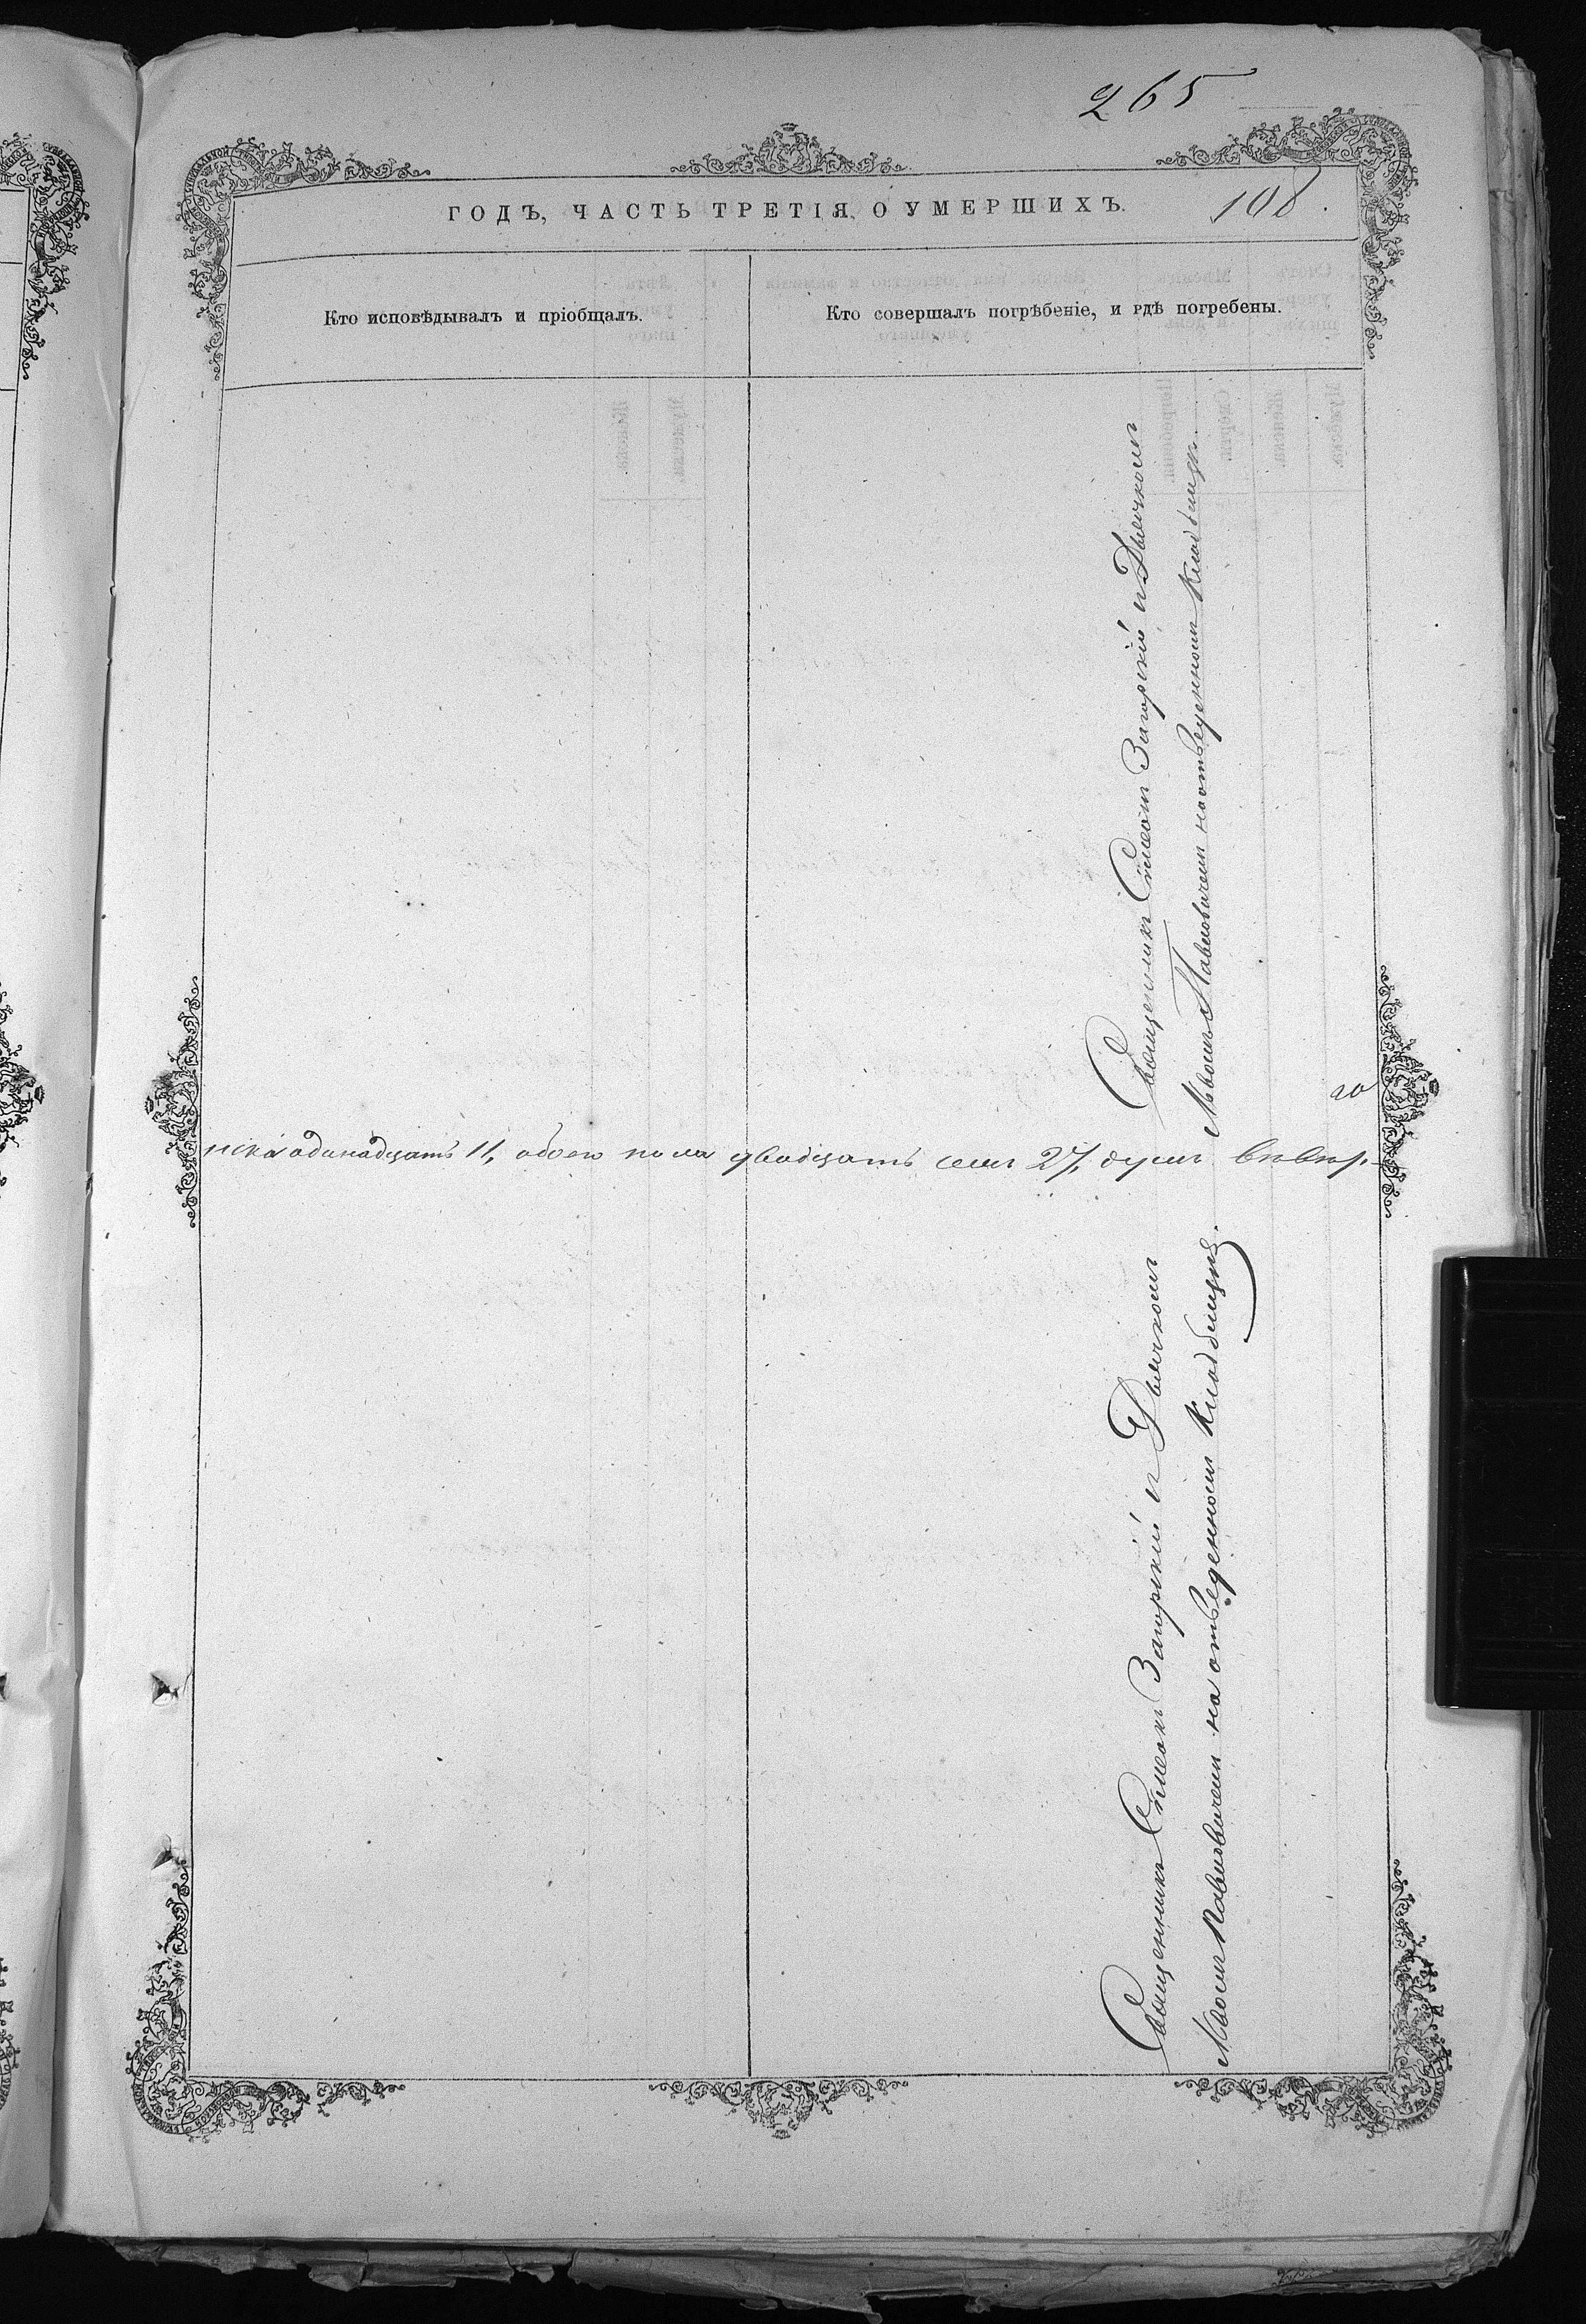 265
ГОДЪ, ЧАСТЬ ТРЕТІЯ, О УМЕРШИХЪ.
108.
Кто исповѣдывалъ и пріобщалъ.
Кто совершалъ погрѣбеніе, и гдѣ погребены.
Священникъ Симеонъ Загорскій и Дьячкомъ
Павловичемъ на отведенномъ Кладбищѣ.
нска одинадцать 11, обоего пола двадцать семь 27, душъ
Священникъ Симеонъ Загорскій и Дьячкомъ
Павловичемъ на отведенномъ Кладбищѣ.